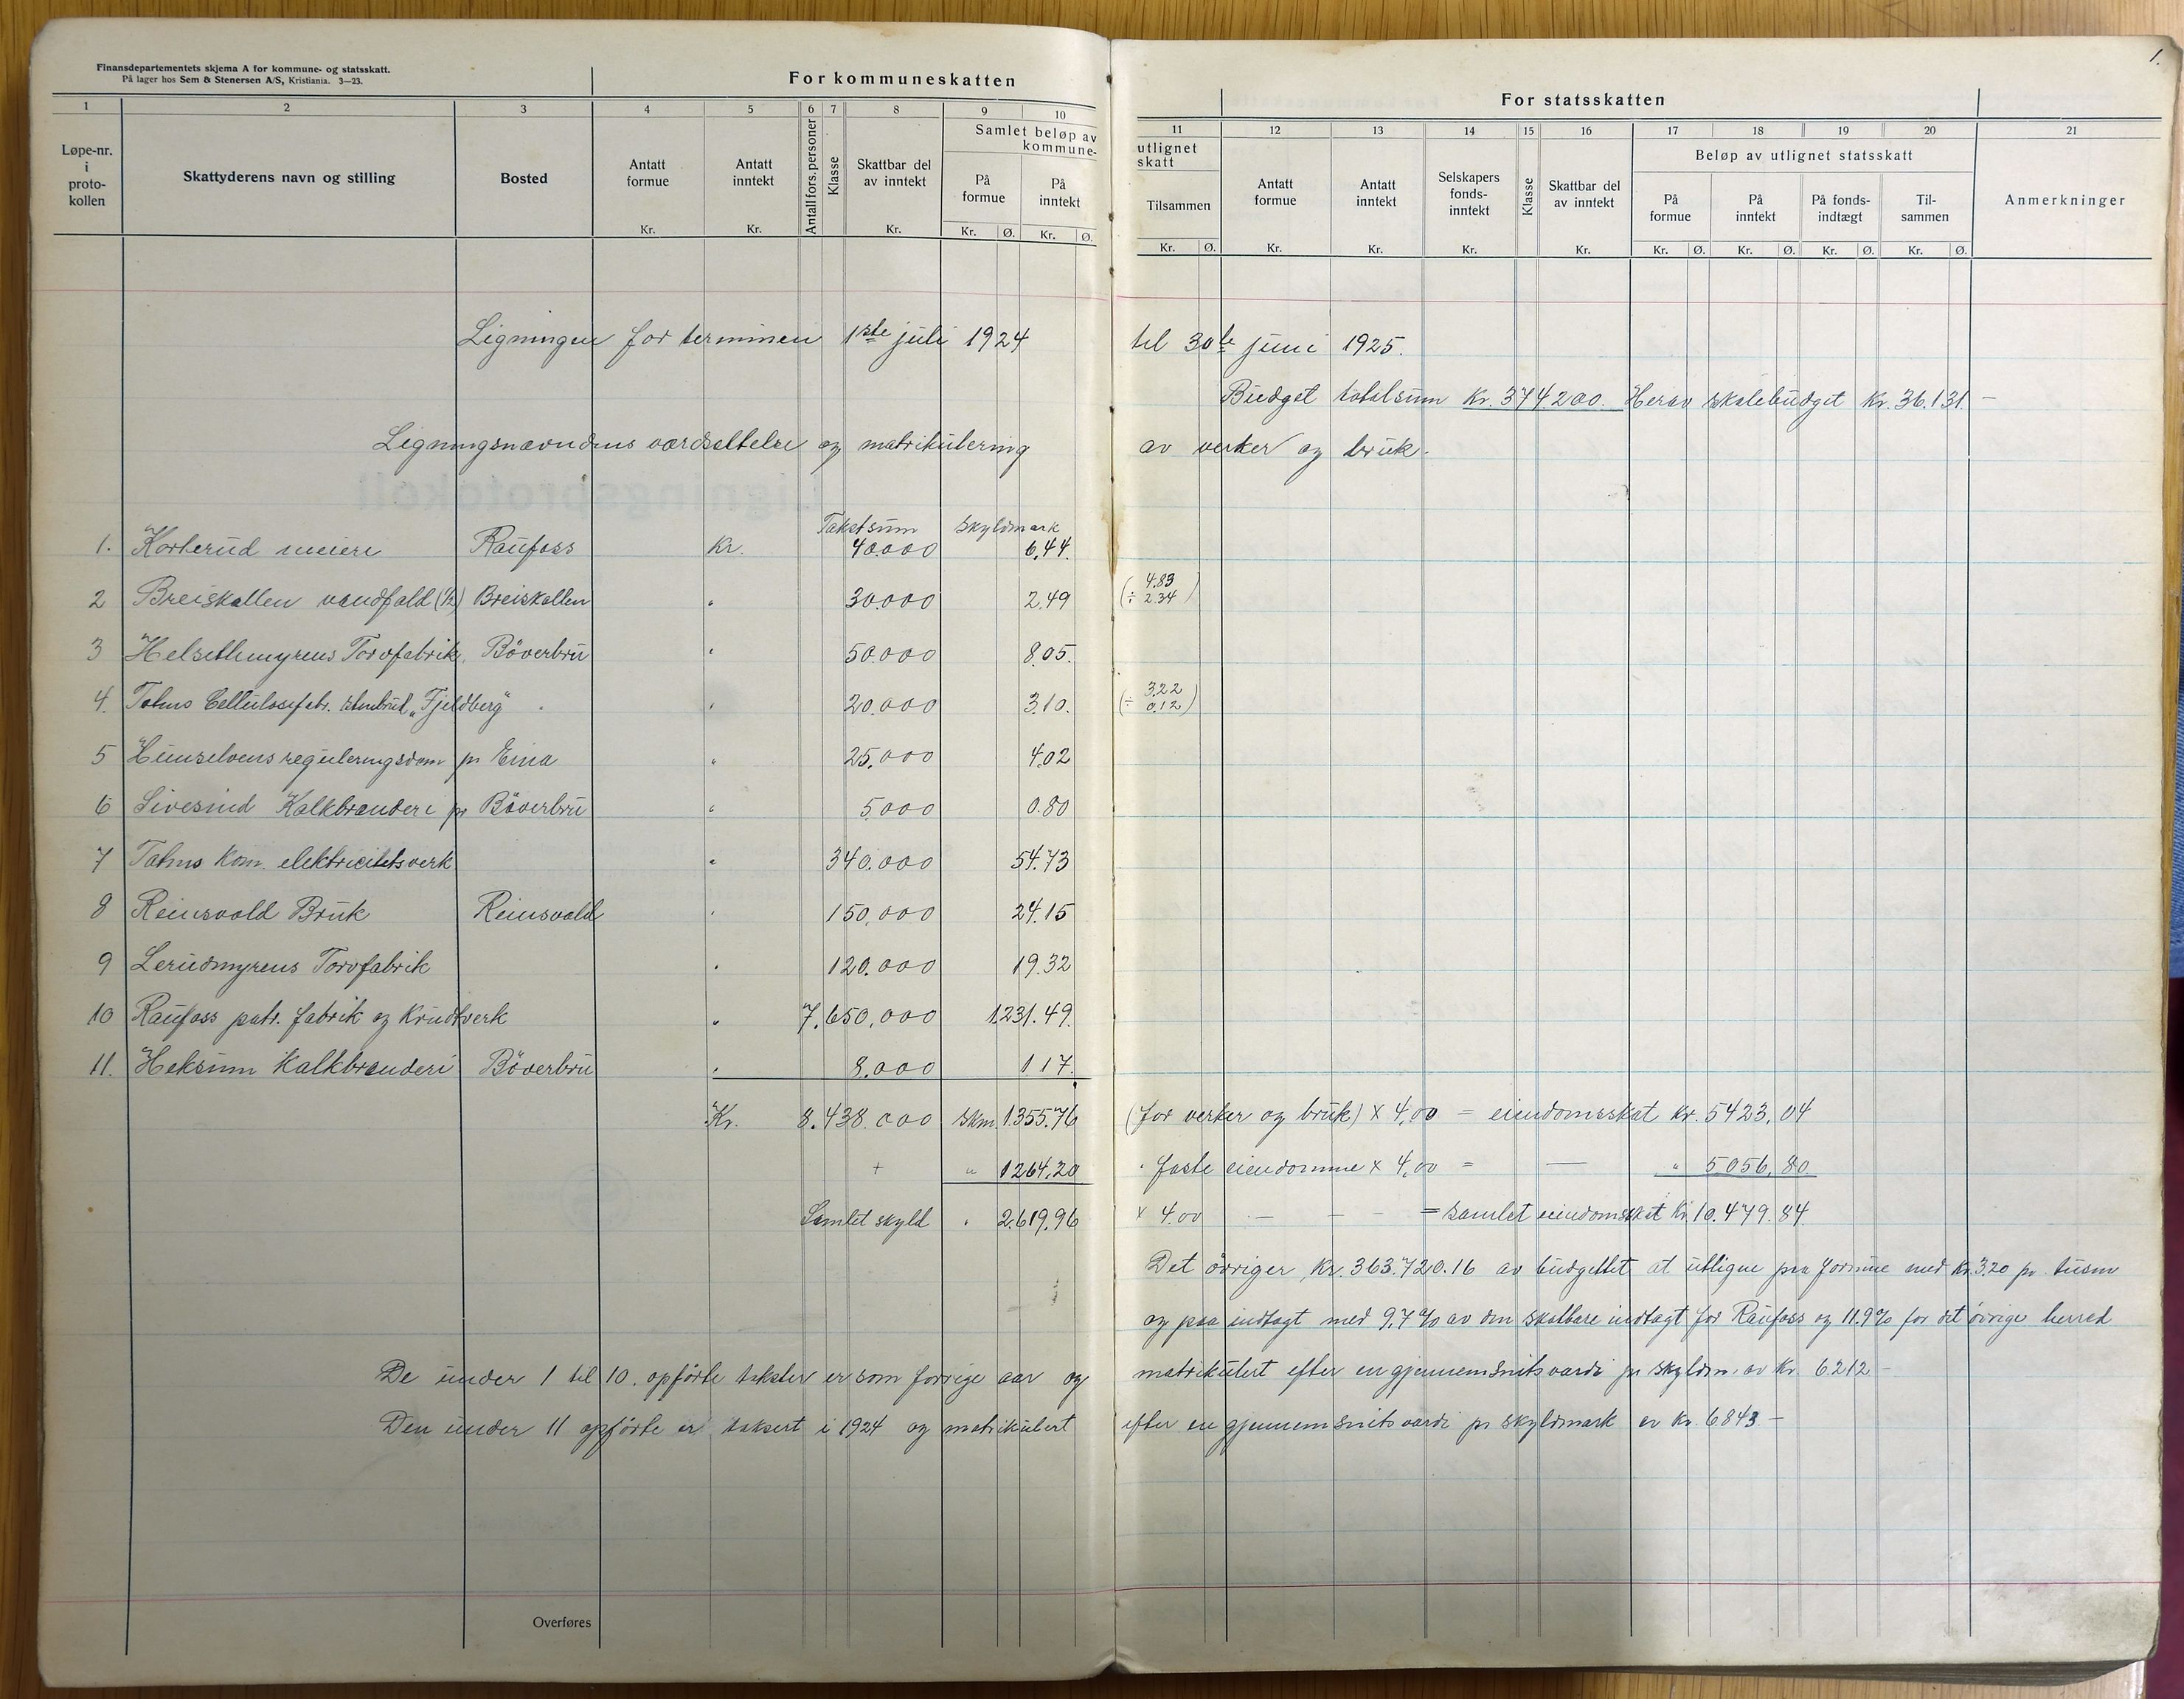 Finansdepartementets skjema A for kommune- og statsskatt.
På lager hos Sem & Stenersen A/S, Kristiania. 3—23.
For kommuneskatten
For statsskatten
1.
1 2 3 4 5 6 7 8 9 10 11 12 13 14 15 16 17 18 19 20 21
Løpe-nr. i proto-kollen
Skattyderens navn og stilling
Bosted
Antatt formue Kr.
Antatt inntekt Kr.
Antall fors. personer
Klasse
Skattbar del av inntekt Kr.
Samlet beløp av kommune-
På formue Kr. Ø.
På inntekt Kr. Ø.
utlignet skatt
Tilsammen Kr. Ø.
Antatt formue Kr.
Antatt inntekt Kr.
Selskapers fonds-inntekt Kr.
Klasse
Skattbar del av inntekt Kr.
Beløp av utlignet statsskatt
På formue Kr. Ø.
På inntekt Kr. Ø.
På fonds-indtægt Kr. Ø.
Til-sammen Kr. Ø.
Anmerkninger
Ligningen for terminen 1ste juli 1924 til 30te juni 1925.
Budget totalsum Kr. 374200. Herav skolebudget Kr. 36.131.—
Ligningsnævndens værdsettelse og matrikulering av verker og bruk.
Takstsum Skyldmark
1. Korterud meieri Raufoss Kr. 40.000 6,44.
2 Breiskallen vandfald (½) Breiskallen " 30.000 2.49 (4.83 ÷ 2.34)
3 Helsethmyrens Torvfabrik, Böverbru " 50.000 8.05.
4. Totens Cellulosefabr. stenbrud „Fjeldberg" " 20.000 3.10. (3.22 ÷ 0.12)
5 Hunselvens reguleringsdam pr Eina " 25.000 4.02
6 Sivesind Kalkbrænderi pr Böverbru " 5.000 0.80
7 Totens Kom. elektricitetsverk " 340.000 54.73
8 Reinsvold Bruk Reinsvold " 150.000 24.15
9 Lerudmyrens Torvfabrik " 120.000 19.32
10 Raufoss patr. fabrik og Krudtverk " 7.650.000 1231.49.
11. Heksum Kalkbrænderi Böverbru " 8.000 1 17.
Kr. 8.438.000 Skm. 1355.76 (for verker og bruk) × 4,00 = eiendomsskat Kr. 5423,04
+ " 1264,20 " faste eiendomme × 4,00 = — " 5056,80
Samlet skyld " 2.619,96 × 4.00 — — - = samlet eiendomsskat Kr. 10.479.84
Det övriger Kr. 363.720.16 av budgettet at utligne paa formue med Kr. 3.20 pr. tusen
og paa indtægt med 9,7 % av den skatbare indtægt for Raufoss og 11.9% for det övrige herred
De under 1 til 10. opförte takster er som forrige aar og matrikulert efter en gjennemsnitsværdi pr skyldm. av Kr. 6212 -
Den under 11 opförte er taksert i 1924 og matrikulert efter en gjennemsnitsværdi pr skyldmark av Kr. 6843 —
Overføres